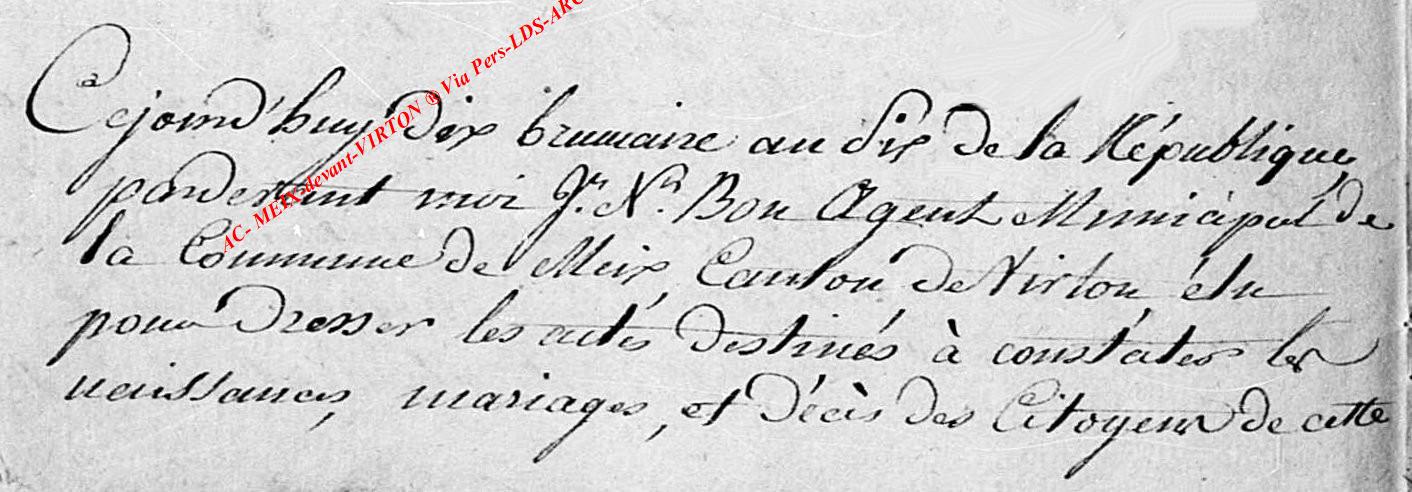 AC- MEIX-devant-VIRTON ® Via Pers-LDS-ARC
Cejourd'huy dix brumaire an dix de la République,
pardevant moi Jn. Ns. Bon Agent Municipal de
la Commune de Meix, Canton de Virton élu
pour dresser les actes destinés à constater les
naissances, mariages, et décès des Citoyens de cette